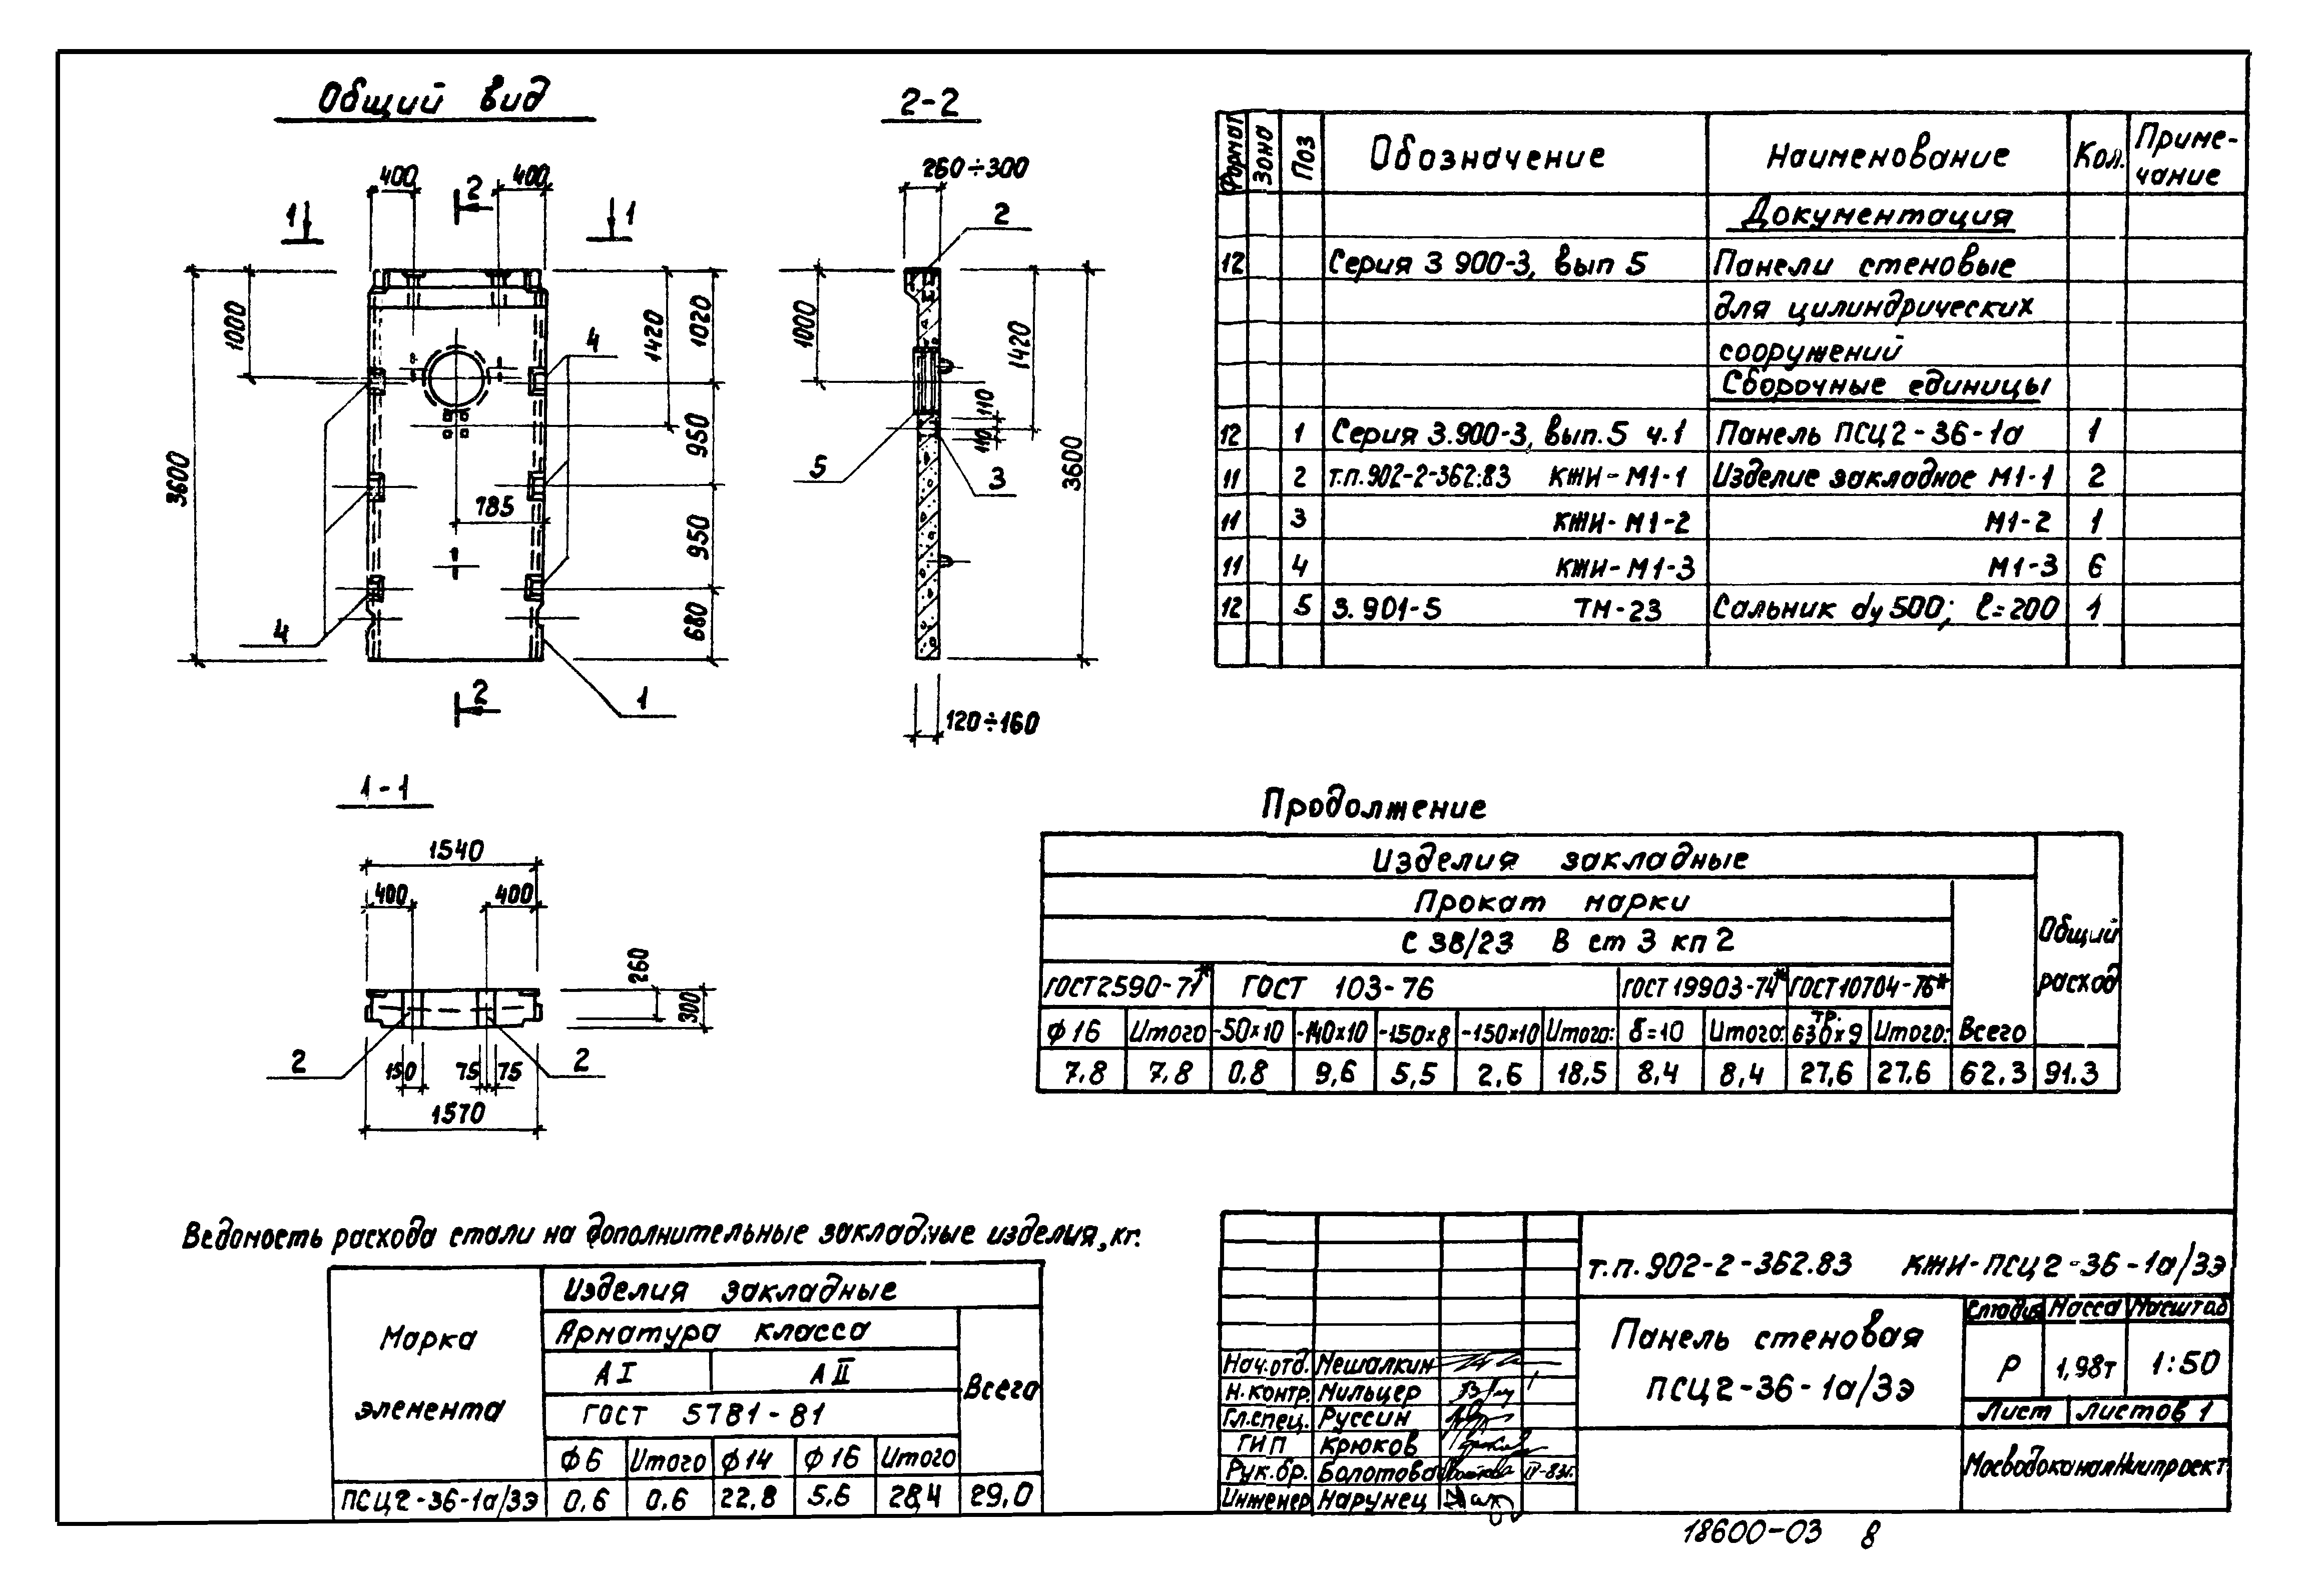 Общий вид
400
400
2
1
1
1000
1420
1020
4
950
3600
785
950
680
4
1
2
2-2
260÷300
2
1000
1420
110
110
5
3
3600
120÷160
1-1
1540
400
400
260
300
2
2
150
75
75
1570
Формат Зона Поз Обозначение Наименование Кол. Приме-
чание
Документация
12 Серия 3 900-3, вып 5 Панели стеновые
для цилиндрических
сооружений
Сборочные единицы
12 1 Серия 3.900-3, вып. 5 ч.1 Панель ПСЦ2-36-1а 1
11 2 т.п.902-2-362:83 КЖИ-М1-1 Изделие закладное М1-1 2
11 3 КЖИ-М1-2 М1-2 1
11 4 КЖИ-М1-3 М1-3 6
12 5 3.901-5 ТМ-23 Сальник dу 500; ℓ=200 1
Продолжение
Изделия закладные
Прокат марки
С 38/23 В ст 3 кп 2
Общий
расход
ГОСТ2590-71* ГОСТ 103-76 ГОСТ 19903-74* ГОСТ10704-76*
ф 16 Итого -50×10 -140×10 -150×8 -150×10 Итого: δ=10 Итого: тр. 630×9 Итого: Всего
7,8 7,8 0,8 9,6 5,5 2,6 18,5 8,4 8,4 27,6 27,6 62,3 91.3
Ведомость расхода стали на дополнительные закладные изделия, кг.
Марка
элемента
Изделия закладные
Арматура класса
А I А II
Всего
ГОСТ 5781-81
ф 6 Итого ф 14 ф 16 Итого
ПСЦ2-36-1а/3э 0,6 0,6 22,8 5,6 28,4 29,0
т.п. 902-2-362.83 КЖИ-ПСЦ2-36-1а/3э
Панель стеновая
ПСЦ2-36-1а/3э
Стадия Масса Масштаб
Р 1,98т 1:50
Лист Листов 1
МосводоканалНИИпроект
Нач.отд. Мешалкин
Н.контр. Мильцер
Гл.спец. Руссин
ГИП Крюков
Рук.бр. Болотова IV-83г.
Инженер Нарунец
18600-03 8